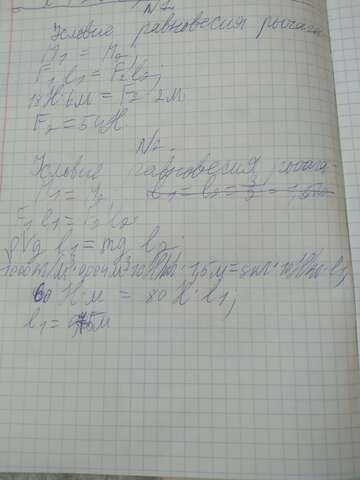 N1.
Условие равновесия рычага
M₁ = M₂
F₁l₁ = F₂l₂;
18Н·6м = F₂·2м
F₂ = 54Н.
N2.
Условие равновесия
M₁ = M₂
F₁l₁ = F₂l₂
ρVg l₁ = mg l₂;
60 Н·м = 80 Н·l₁;
l₁ = 0,75м